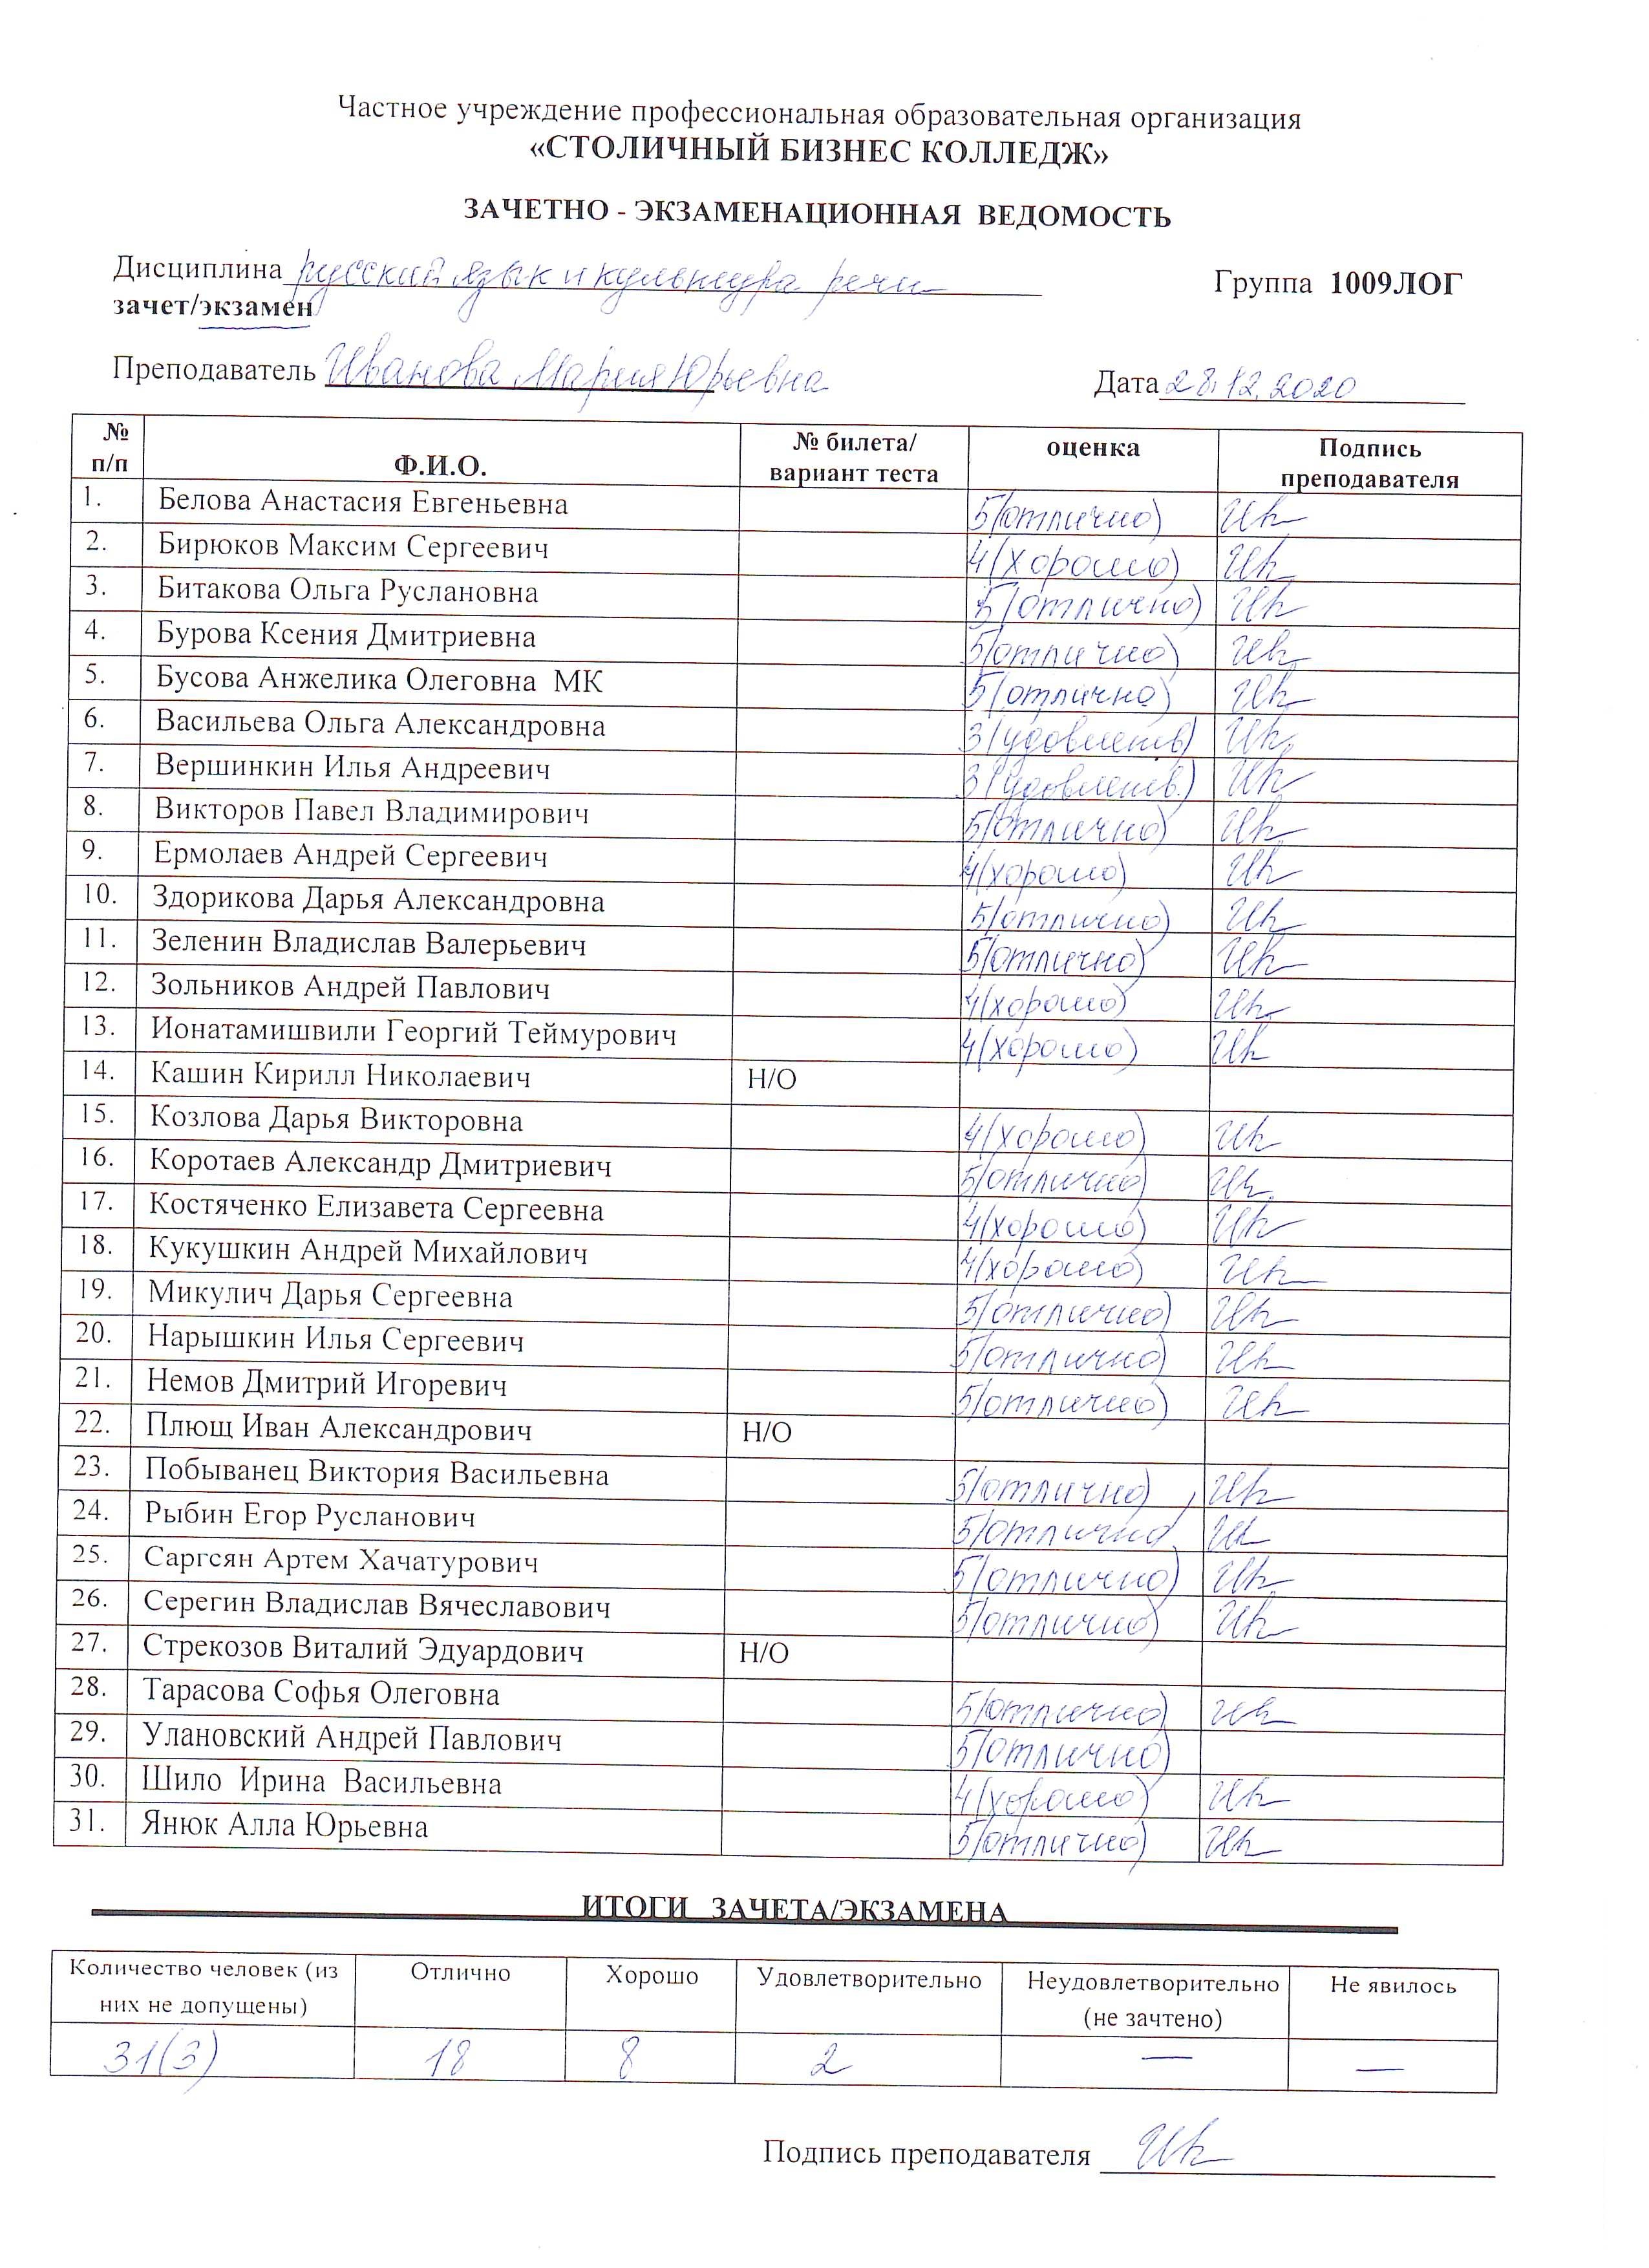 Частное учреждение профессиональная образовательная организация
«СТОЛИЧНЫЙ БИЗНЕС КОЛЛЕДЖ»
ЗАЧЕТНО - ЭКЗАМЕНАЦИОННАЯ ВЕДОМОСТЬ
Дисциплина русский язык и культура речи Группа 1009ЛОГ
зачет/экзамен
Преподаватель Иванова Мария Юрьевна Дата 28.12.2020
№ п/п Ф.И.О. № билета/ вариант теста оценка Подпись преподавателя
1. Белова Анастасия Евгеньевна 5(отлично)
2. Бирюков Максим Сергеевич 4(хорошо)
3. Битакова Ольга Руслановна 5(отлично)
4. Бурова Ксения Дмитриевна 5(отлично)
5. Бусова Анжелика Олеговна МК 5(отлично)
6. Васильева Ольга Александровна 3(удовлетв)
7. Вершинкин Илья Андреевич 3(удовлетв.)
8. Викторов Павел Владимирович 5(отлично)
9. Ермолаев Андрей Сергеевич 4(хорошо)
10. Здорикова Дарья Александровна 5(отлично)
11. Зеленин Владислав Валерьевич 5(отлично)
12. Зольников Андрей Павлович 4(хорошо)
13. Ионатамишвили Георгий Теймурович 4(хорошо)
14. Кашин Кирилл Николаевич Н/О
15. Козлова Дарья Викторовна 4(хорошо)
16. Коротаев Александр Дмитриевич 5(отлично)
17. Костяченко Елизавета Сергеевна 4(хорошо)
18. Кукушкин Андрей Михайлович 4(хорошо)
19. Микулич Дарья Сергеевна 5(отлично)
20. Нарышкин Илья Сергеевич 5(отлично)
21. Немов Дмитрий Игоревич 5(отлично)
22. Плющ Иван Александрович Н/О
23. Побыванец Виктория Васильевна 5(отлично)
24. Рыбин Егор Русланович 5(отлично)
25. Саргсян Артем Хачатурович 5(отлично)
26. Серегин Владислав Вячеславович 5(отлично)
27. Стрекозов Виталий Эдуардович Н/О
28. Тарасова Софья Олеговна 5(отлично)
29. Улановский Андрей Павлович 5(отлично)
30. Шило Ирина Васильевна 4(хорошо)
31. Янюк Алла Юрьевна 5(отлично)
ИТОГИ ЗАЧЕТА/ЭКЗАМЕНА
Количество человек (из них не допущены) Отлично Хорошо Удовлетворительно Неудовлетворительно (не зачтено) Не явилось
31(3) 18 8 2 — —
Подпись преподавателя